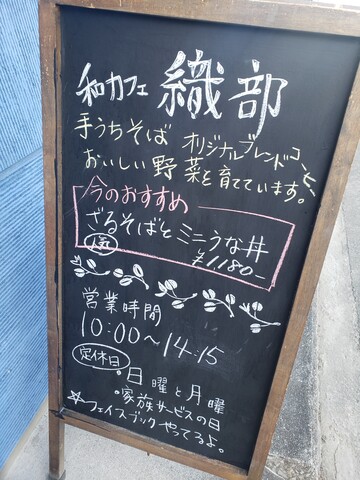 和カフェ 織部
手うちそば オリジナルブレンドコーヒー
おいしい野菜を育てています。
今のおすすめ
ざるそばとミニうな丼
¥1,180-
営業時間
10:00〜14:15
定休日
・日曜と月曜
・家族サービスの日
☆フェイスブックやってるよ。